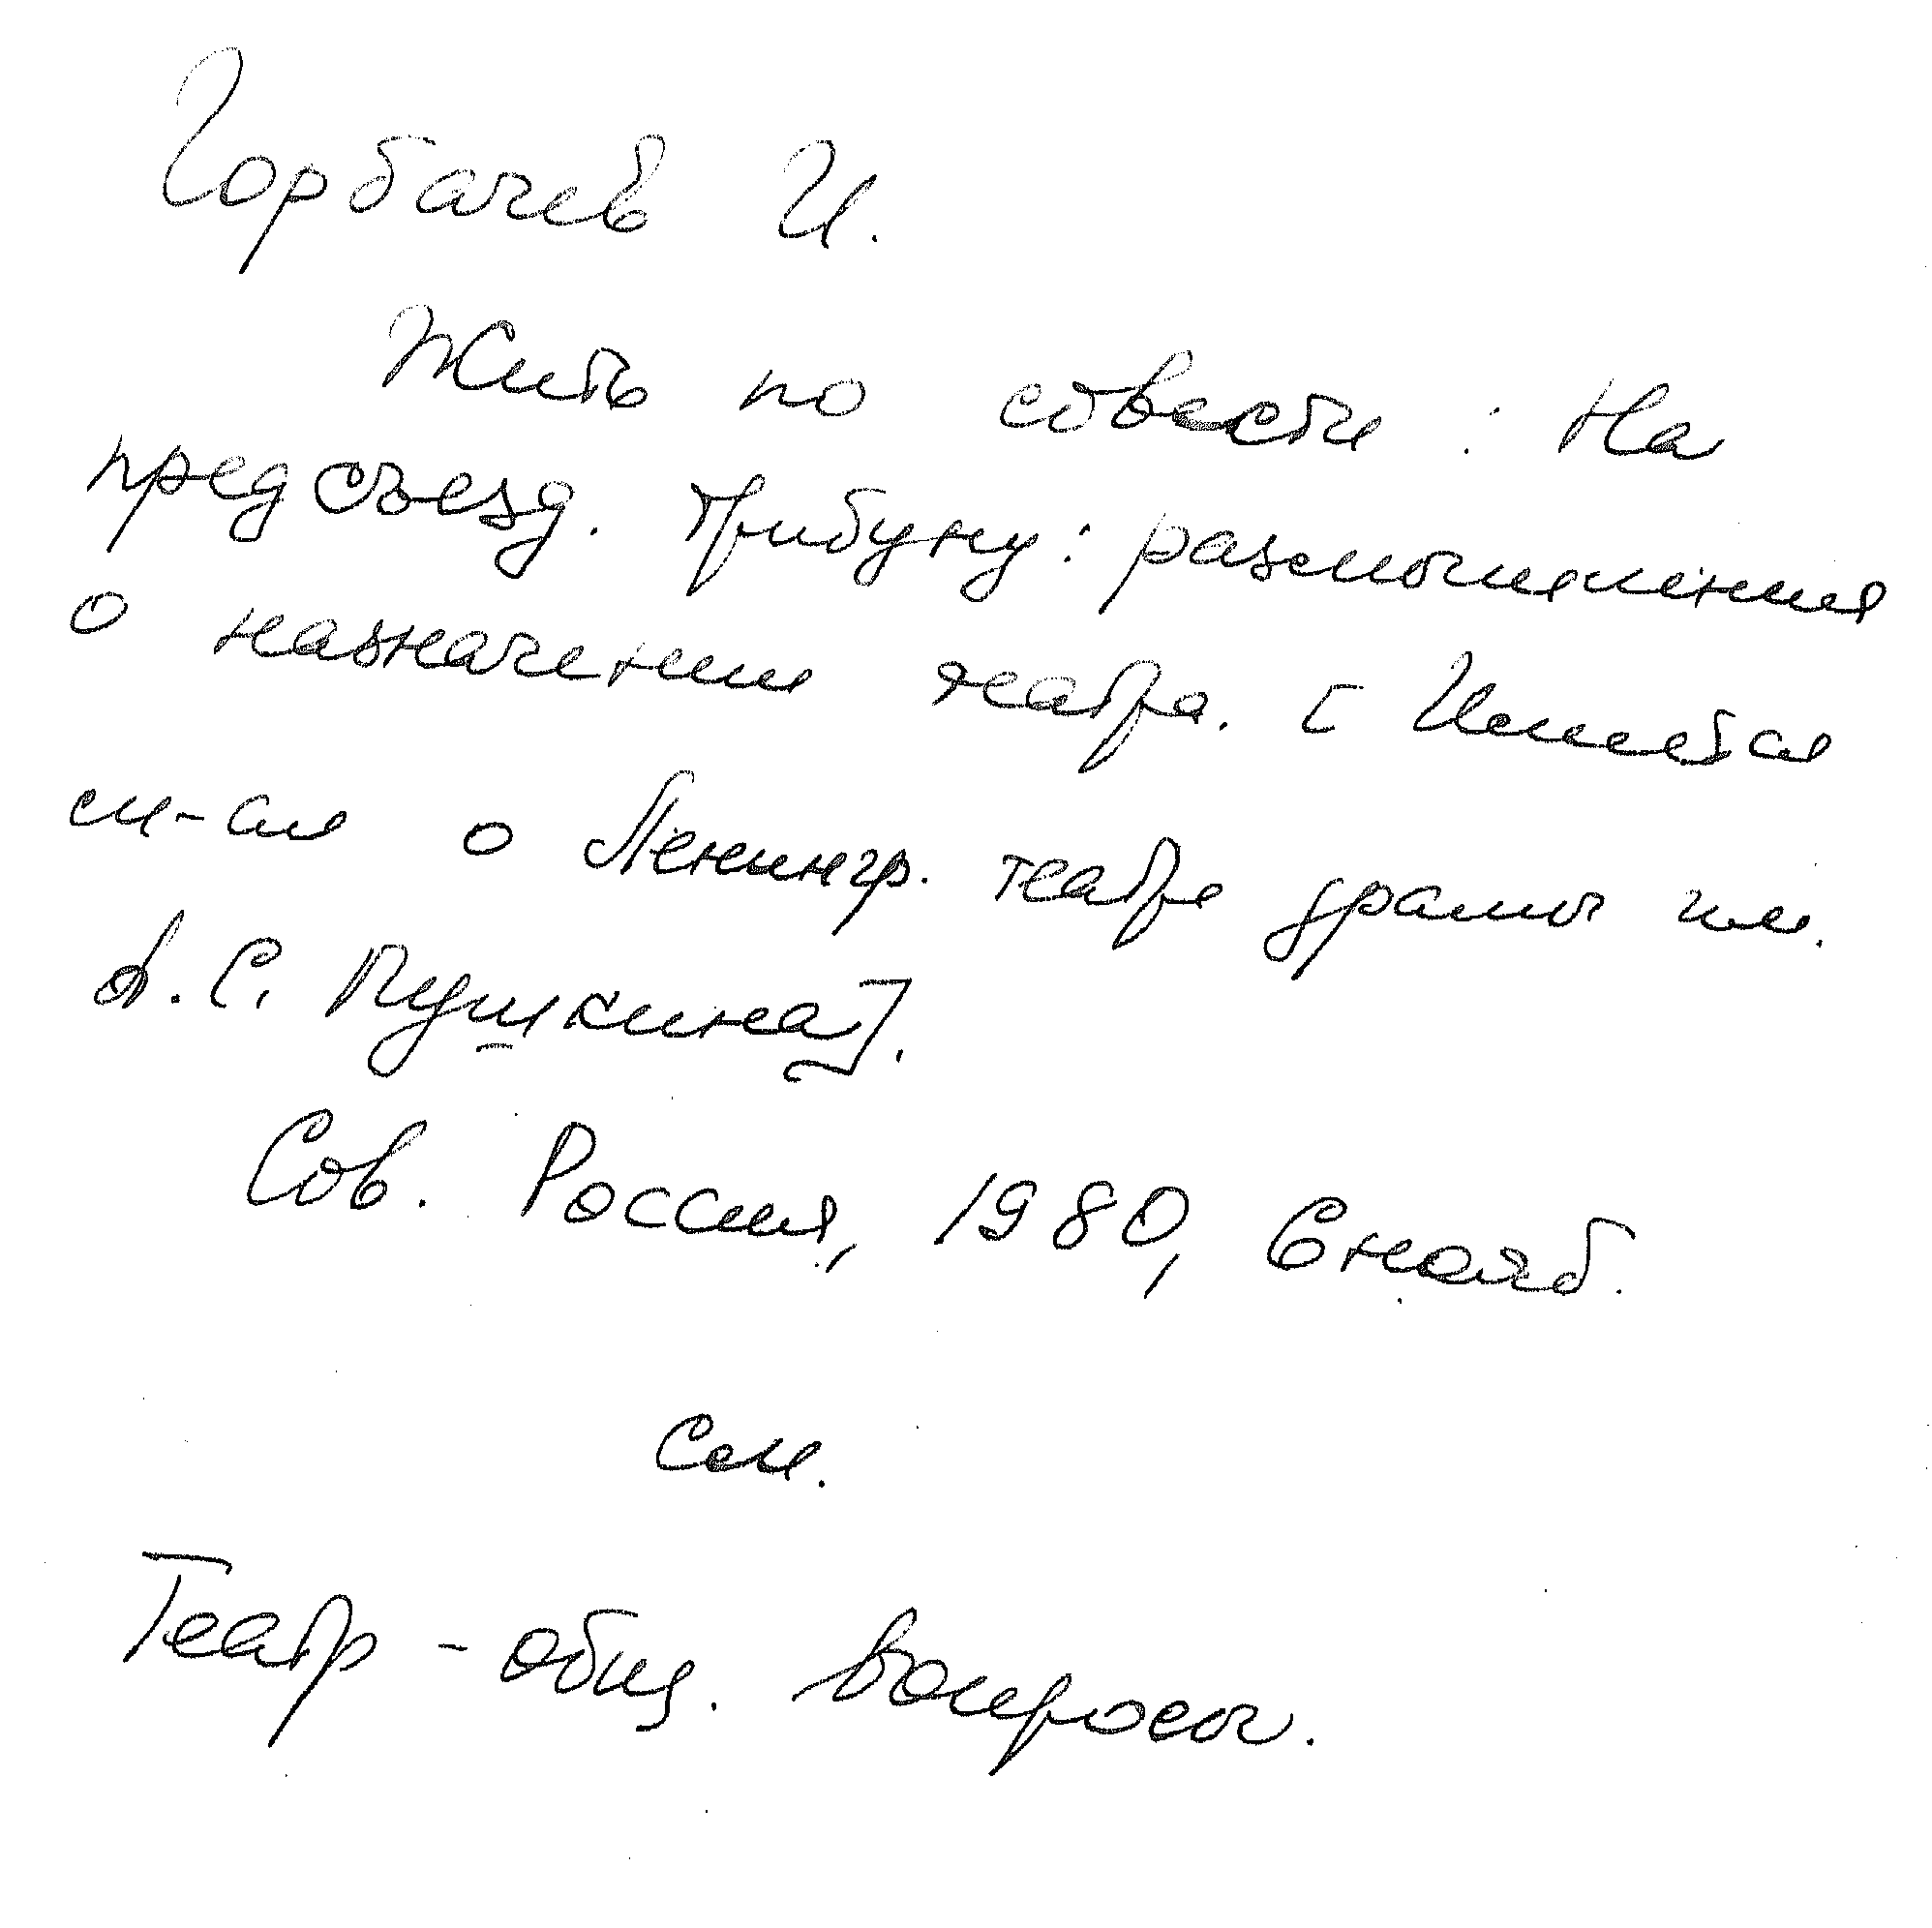 Горбачев И.
Жить по совести : На
предсъезд. трибуну: размышления
о назначении театра. [Имеются
м-лы о Ленингр. театре драмы им.
А.С. Пушкина].
Сов. Россия, 1980, 6 нояб.
см.
Театр - общ. вопросы.